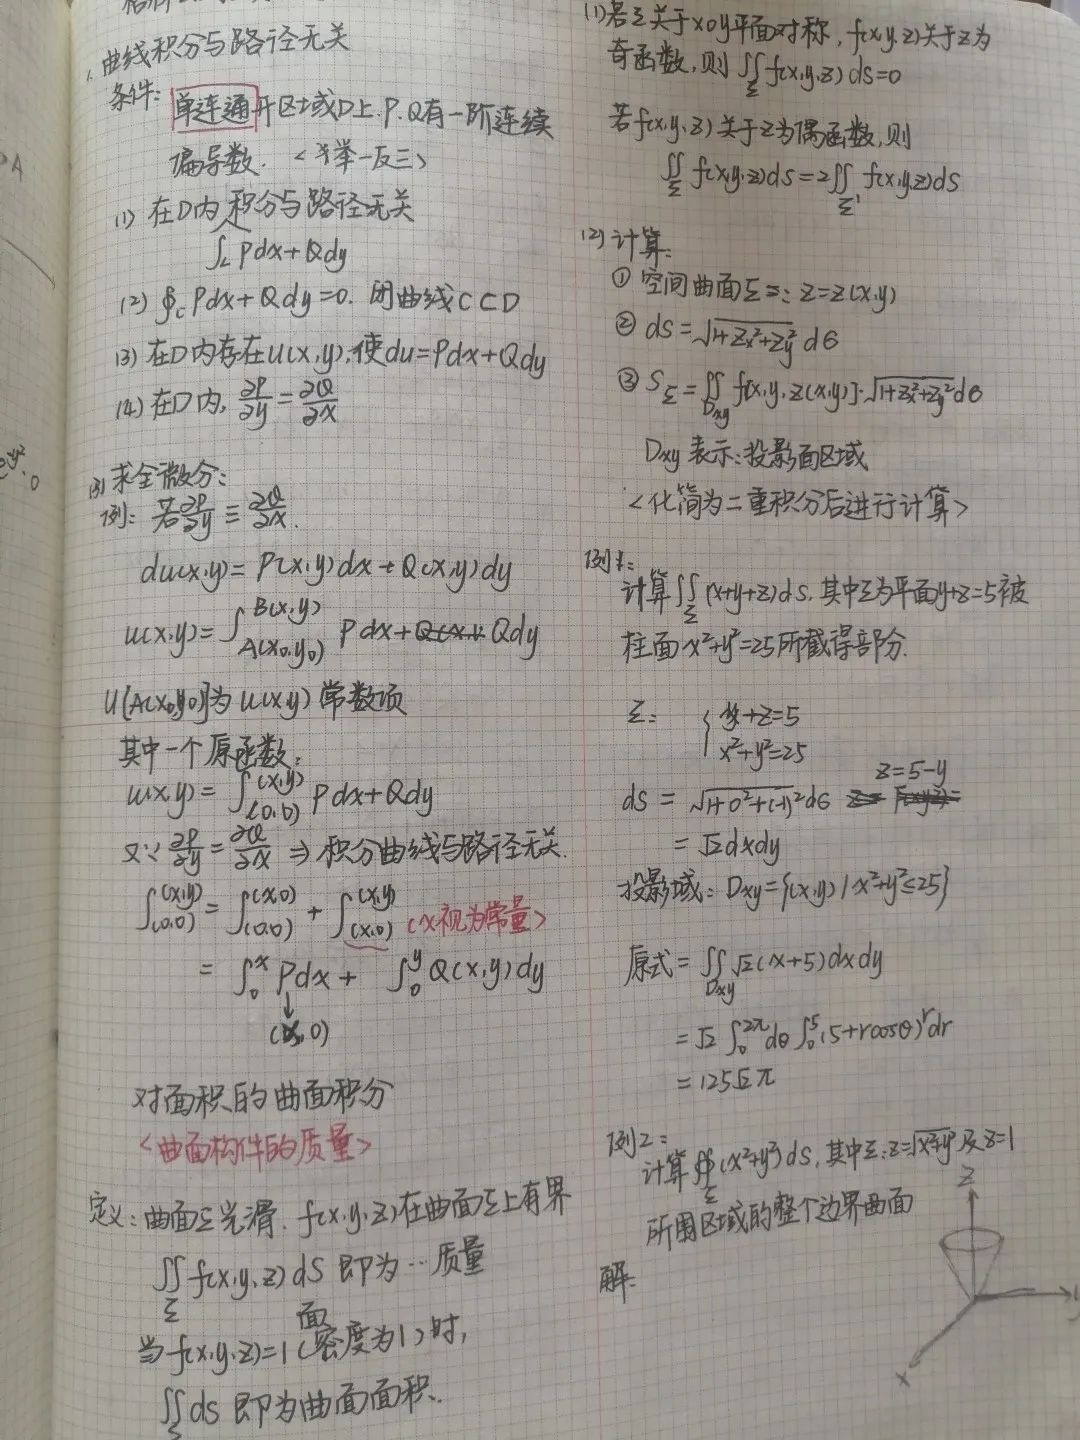 1. 曲线积分与路径无关
条件: 单连通开区域D上.P.Q有一阶连续
偏导数. <举一反三>
(1) 在D内积分与路径无关
∫_L Pdx+Qdy
(2) ∮_C Pdx+Qdy=0. 闭曲线C⊂D
(3) 在D内存在u(x,y),使du=Pdx+Qdy
(4) 在D内, ∂P/∂y=∂Q/∂x
(3) 求全微分:
例: 若∂P/∂y≡∂Q/∂x.
du(x,y)=P(x,y)dx+Q(x,y)dy
u(x,y)=∫_{A(x₀,y₀)}^{B(x,y)} Pdx+Qdy
U[A(x₀,y₀)]为u(x,y)常数项
其中一个原函数:
u(x,y)=∫_{(0,0)}^{(x,y)} Pdx+Qdy
又∵∂P/∂y=∂Q/∂x ⇒ 积分曲线与路径无关.
∫_{(0,0)}^{(x,y)}=∫_{(0,0)}^{(x,0)}+∫_{(x,0)}^{(x,y)} <x视为常量>
=∫_0^x Pdx+∫_0^y Q(x,y)dy
↓
(x,0)
对面积的曲面积分
<曲面构件的质量>
定义:曲面Σ光滑. f(x,y,z)在曲面Σ上有界
∬_Σ f(x,y,z)dS 即为…质量
当f(x,y,z)=1(面密度为1)时,
∬_Σ ds 即为曲面面积.
(1)若Σ关于xoy平面对称, f(x,y,z)关于z为
奇函数,则∬_Σ f(x,y,z)ds=0
若f(x,y,z)关于z为偶函数,则
∬_Σ f(x,y,z)ds=2∬_Σ' f(x,y,z)ds
(2)计算:
① 空间曲面Σ=: z=z(x,y)
② ds=√(1+Zx²+Zy²) dσ
③ S_Σ=∬_Dxy f[x,y,z(x,y)]·√(1+Zx²+Zy²)dσ
Dxy表示:投影面区域
<化简为二重积分后进行计算>
例1:
计算∬_Σ(x+y+z)ds,其中Σ为平面y+z=5被
柱面x²+y²=25所截得部分.
Σ: { y+z=5
x²+y²=25
z=5-y
ds=√(1+0²+(-1)²)dσ
=√2dxdy
投影域:Dxy={(x,y)|x²+y²≤25}
原式=∬_Dxy √2(x+5)dxdy
=√2∫_0^2π dθ∫_0^5(5+rcosθ)rdr
=125√2π
例2:
计算∯_Σ(x²+y²)ds,其中Σ:z=√(x²+y²)及z=1
所围区域的整个边界曲面
解:
z
x
y
A